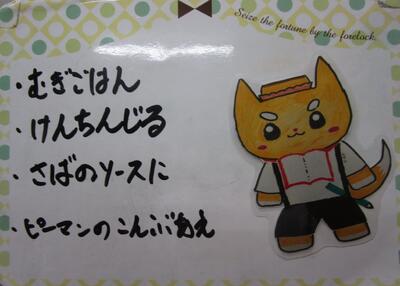 Seize the fortune by the forelock.
・むぎごはん
・けんちんじる
・さばのソースに
・ピーマンのこんぶあえ